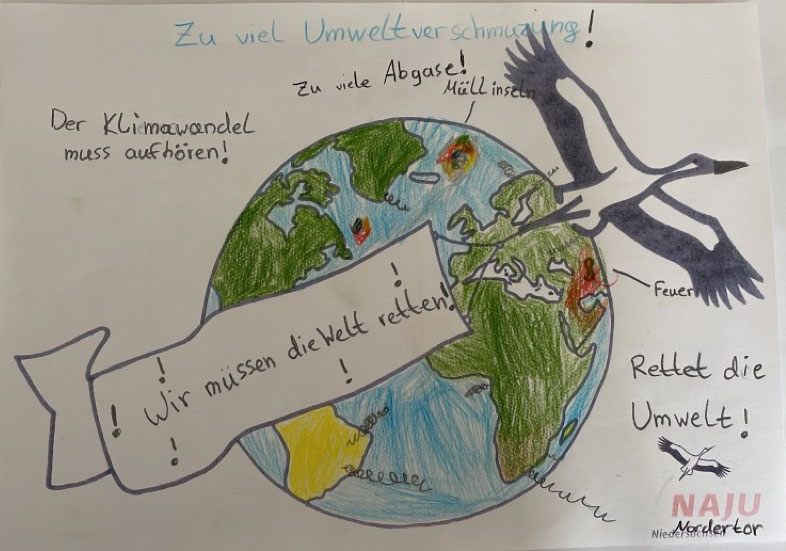 Zu viel Umweltverschmuzung!
Zu viele Abgase!
Müllinseln
Der Klimawandel
muss aufhören!
Wir müssen die Welt retten!
Feuer
Rettet die
Umwelt!
NAJU
Niedersachsen
Nordertor